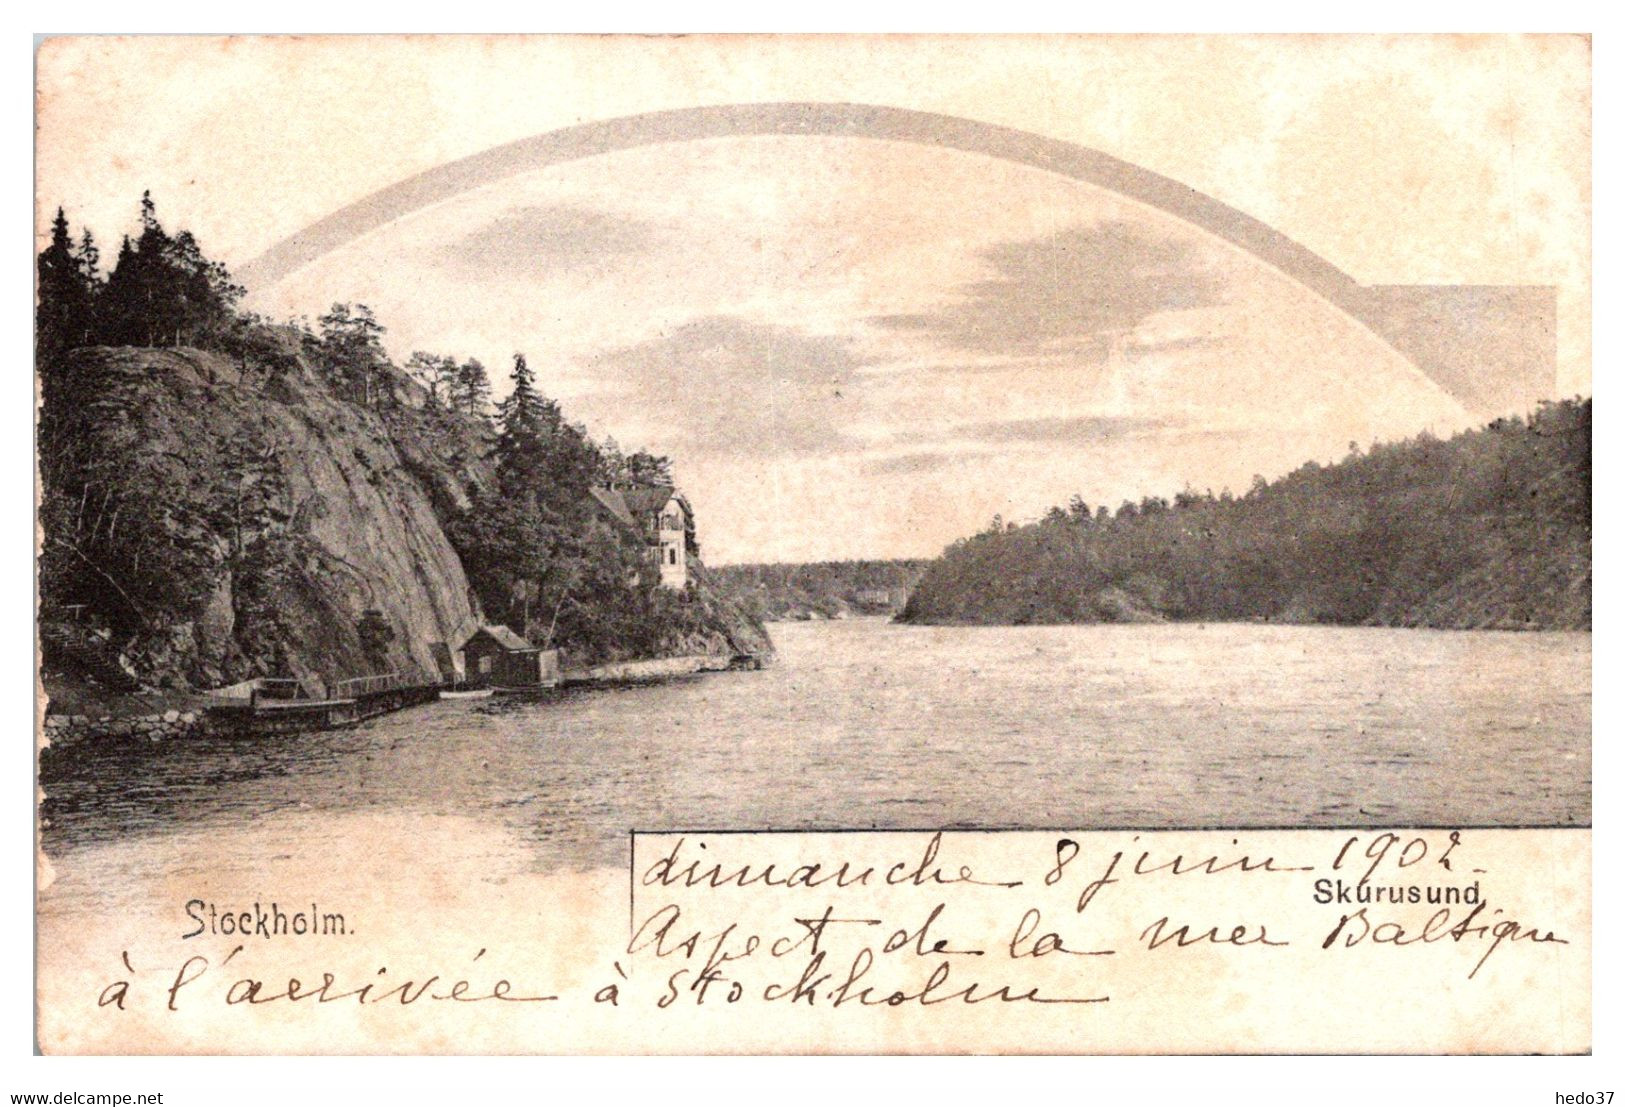 dimanche 8 juin 1902
Skurusund.
Stockholm.
Aspect de la mer Baltique
à l'arrivée à Stockholm
www.delcampe.net
hedo37